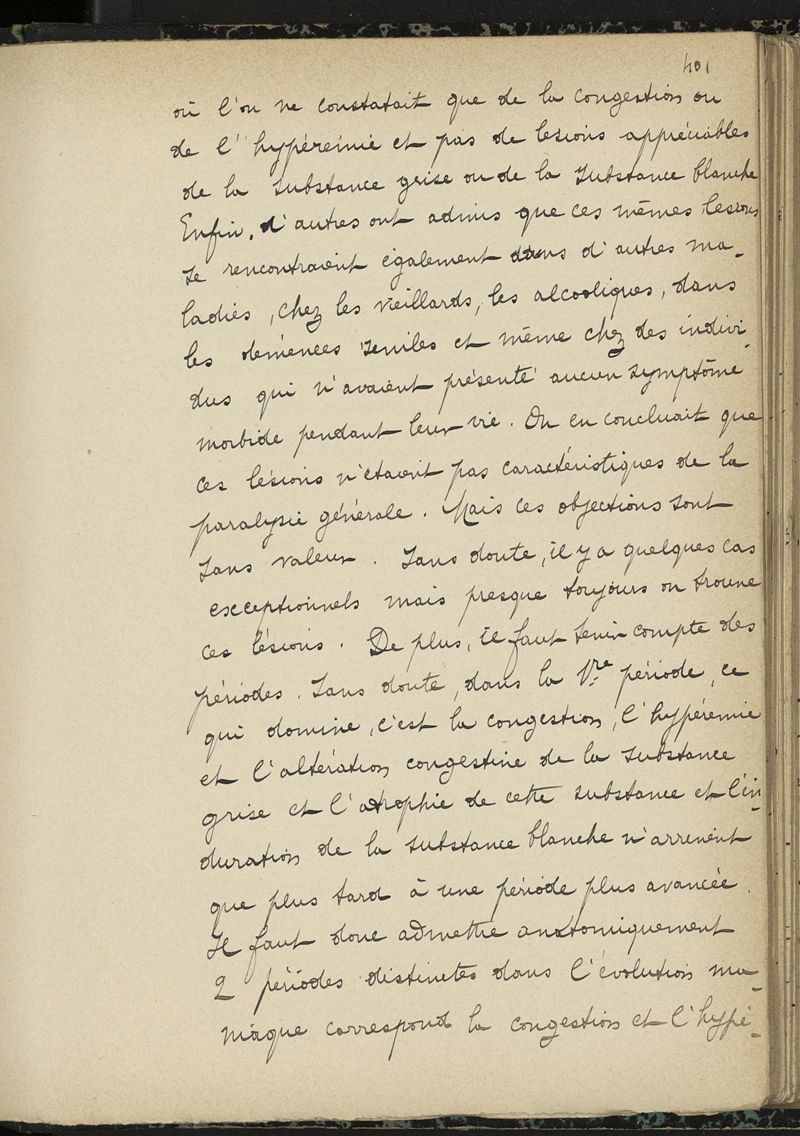 401
où l'on ne constatait que de la congestion ou
de l'hypérémie et pas de lésions appréciables
de la substance grise ou de la substance blanche
Enfin, d'autres ont admis que ces mêmes lésions
se rencontraient également dans d'autres ma-
ladies, chez les vieillards, les alcooliques, dans
les démences séniles et même chez des indivi-
dus qui n'avaient présenté aucun symptôme
morbide pendant leur vie. On en concluait que
ces lésions n'étaient pas caractéristiques de la
paralysie générale. Mais ces objections sont
sans valeur. Sans doute, il y a quelques cas
exceptionnels mais presque toujours on trouve
ces lésions. De plus, il faut tenir compte des
périodes. Sans doute, dans la 1re période, ce
qui domine, c'est la congestion, l'hypérémie
et l'altération congestive de la substance
grise et l'atrophie de cette substance et l'in-
duration de la substance blanche n'arrivent
que plus tard à une période plus avancée.
Il faut donc admettre anatomiquement
2 périodes distinctes dans l'évolution ma-
niaque correspond la congestion et l'hypé-